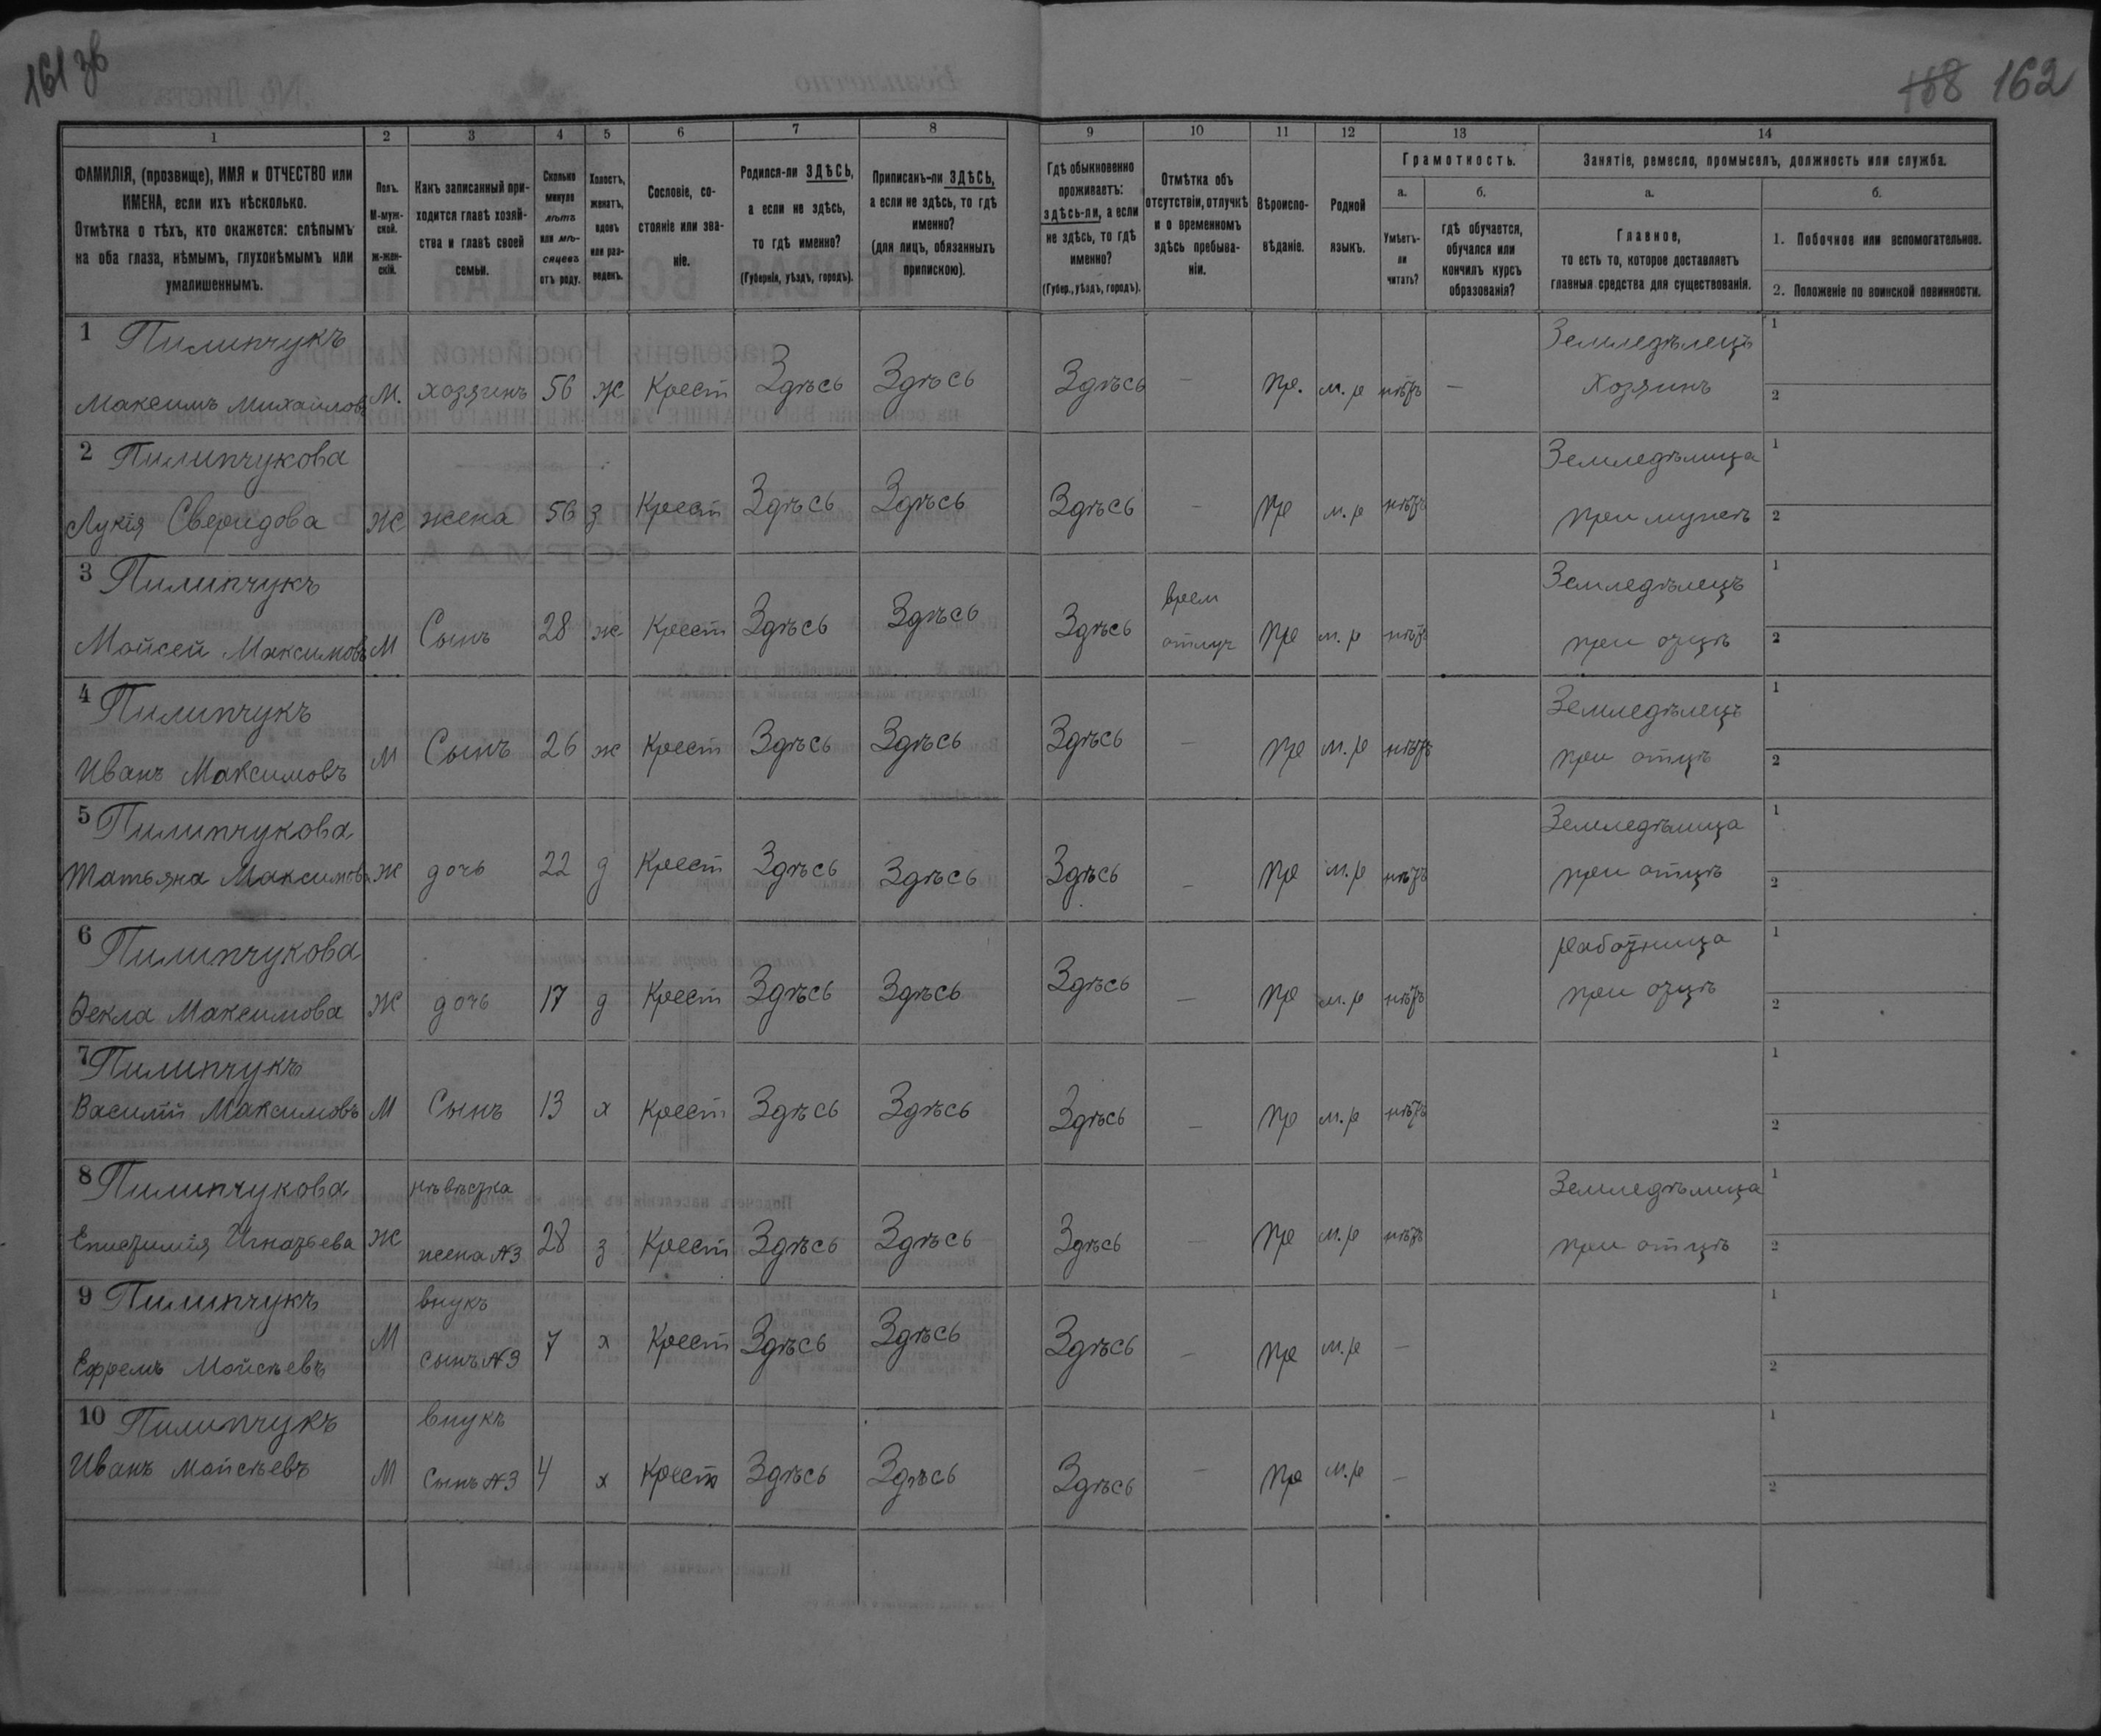 161 зв
168 162
1 2 3 4 5 6 7 8 9 10 11 12 13 14
ФАМИЛІЯ, (прозвище), ИМЯ и ОТЧЕСТВО или
ИМЕНА, если ихъ нѣсколько.
Отмѣтка о тѣхъ, кто окажется: слѣпымъ
на оба глаза, нѣмымъ, глухонѣмымъ или
умалишеннымъ.
Полъ.
М-муж-
ской.
Ж-жен-
скій.
Какъ записанный при-
ходится главѣ хозяй-
ства и главѣ своей
семьи.
Сколько
минуло
лѣтъ
или мѣ-
сяцевъ
отъ роду.
Холостъ,
женатъ,
вдовъ
или раз-
веденъ.
Сословіе, со-
стояніе или зва-
ніе.
Родился-ли ЗДѢСЬ,
а если не здѣсь,
то гдѣ именно?
(Губернія, уѣздъ, городъ).
Приписанъ-ли ЗДѢСЬ,
а если не здѣсь, то гдѣ
именно?
(для лицъ, обязанныхъ
припискою).
Гдѣ обыкновенно
проживаетъ:
здѣсь-ли, а если
не здѣсь, то гдѣ
именно?
(Губер., уѣздъ, городъ).
Отмѣтка объ
отсутствіи, отлучкѣ
и о временномъ
здѣсь пребыва-
ніи.
Вѣроиспо-
вѣданіе.
Родной
языкъ.
Грамотность.
а.
Умѣетъ-
ли
читать?
б.
гдѣ обучается,
обучался или
кончилъ курсъ
образованія?
Занятіе, ремесло, промыселъ, должность или служба.
а.
Главное,
то есть то, которое доставляетъ
главныя средства для существованія.
б.
1. Побочное или вспомогательное.
2. Положеніе по воинской повинности.
1 Пилипчукъ Земледѣлецъ 1
Максимъ Михайловъ М. хозяинъ 56 ж Крест Здѣсь Здѣсь Здѣсь — Пр. м. р нѣтъ — Хозяинъ 2
2 Пилипчукова Земледѣлица 1
Лукія Свиридова Ж жена 56 з Крест Здѣсь Здѣсь Здѣсь — Пр м. р нѣтъ при мужѣ 2
3 Пилипчукъ врем Земледѣлецъ 1
Мойсей Максимовъ М Сынъ 28 ж Крест Здѣсь Здѣсь Здѣсь отлуч Пр м. р нѣтъ при отцѣ 2
4 Пилипчукъ Земледѣлецъ 1
Иванъ Максимовъ М Сынъ 26 ж Крест Здѣсь Здѣсь Здѣсь — Пр м. р нѣтъ при отцѣ 2
5 Пилипчукова Земледѣлица 1
Татьяна Максимова Ж дочь 22 д Крест Здѣсь Здѣсь Здѣсь — Пр м. р нѣтъ при отцѣ 2
6 Пилипчукова Работница 1
Векла Максимова Ж дочь 17 д Крест Здѣсь Здѣсь Здѣсь — Пр м. р нѣтъ при отцѣ 2
7 Пилипчукъ 1
Василій Максимовъ М Сынъ 13 х Крест Здѣсь Здѣсь Здѣсь — Пр м. р нѣтъ 2
8 Пилипчукова нѣвѣстка Земледѣлица 1
Епистимія Игнатьева Ж жена №3 28 з Крест Здѣсь Здѣсь Здѣсь — Пр м. р нѣтъ при отцѣ 2
9 Пилипчукъ внукъ 1
Ефремъ Мойсѣевъ М сынъ №3 7 х Крест Здѣсь Здѣсь Здѣсь — Пр м. р — 2
10 Пилипчукъ внукъ 1
Иванъ Мойсѣевъ М Сынъ №3 4 х Крест Здѣсь Здѣсь Здѣсь — Пр м. р — 2